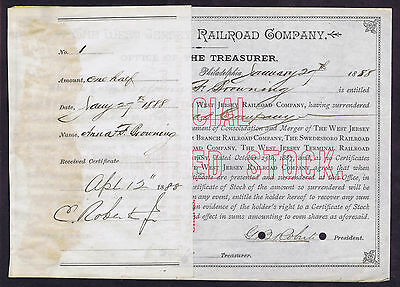 RAILROAD COMPANY.
THE TREASURER.
No. 1
Amount, one half
Date, Jany 27th 1888
Name, Anna F. Browning
Received Certificate
Apl. 12th 1888
Philadelphia, January 27th 1888
F. Browning is entitled
WEST JERSEY RAILROAD COMPANY, having surrendered
Company
ment of Consolidation and Merger of THE WEST JERSEY
BRANCH RAILROAD COMPANY, THE SWEDESBORO RAILROAD
WEST JERSEY TERMINAL RAILROAD
dated October 1887,
JERSEY RAILROAD COMPANY, as Certificates
are presented and surrendered at this office, in
Certificate of Stock of the amount so surrendered will be
event, entitle the holder hereof to recover any sum
evidence of the holder's right to a Certificate of Stock
effect in sums amounting to even shares as aforesaid.
STOCK.
President.
Treasurer.